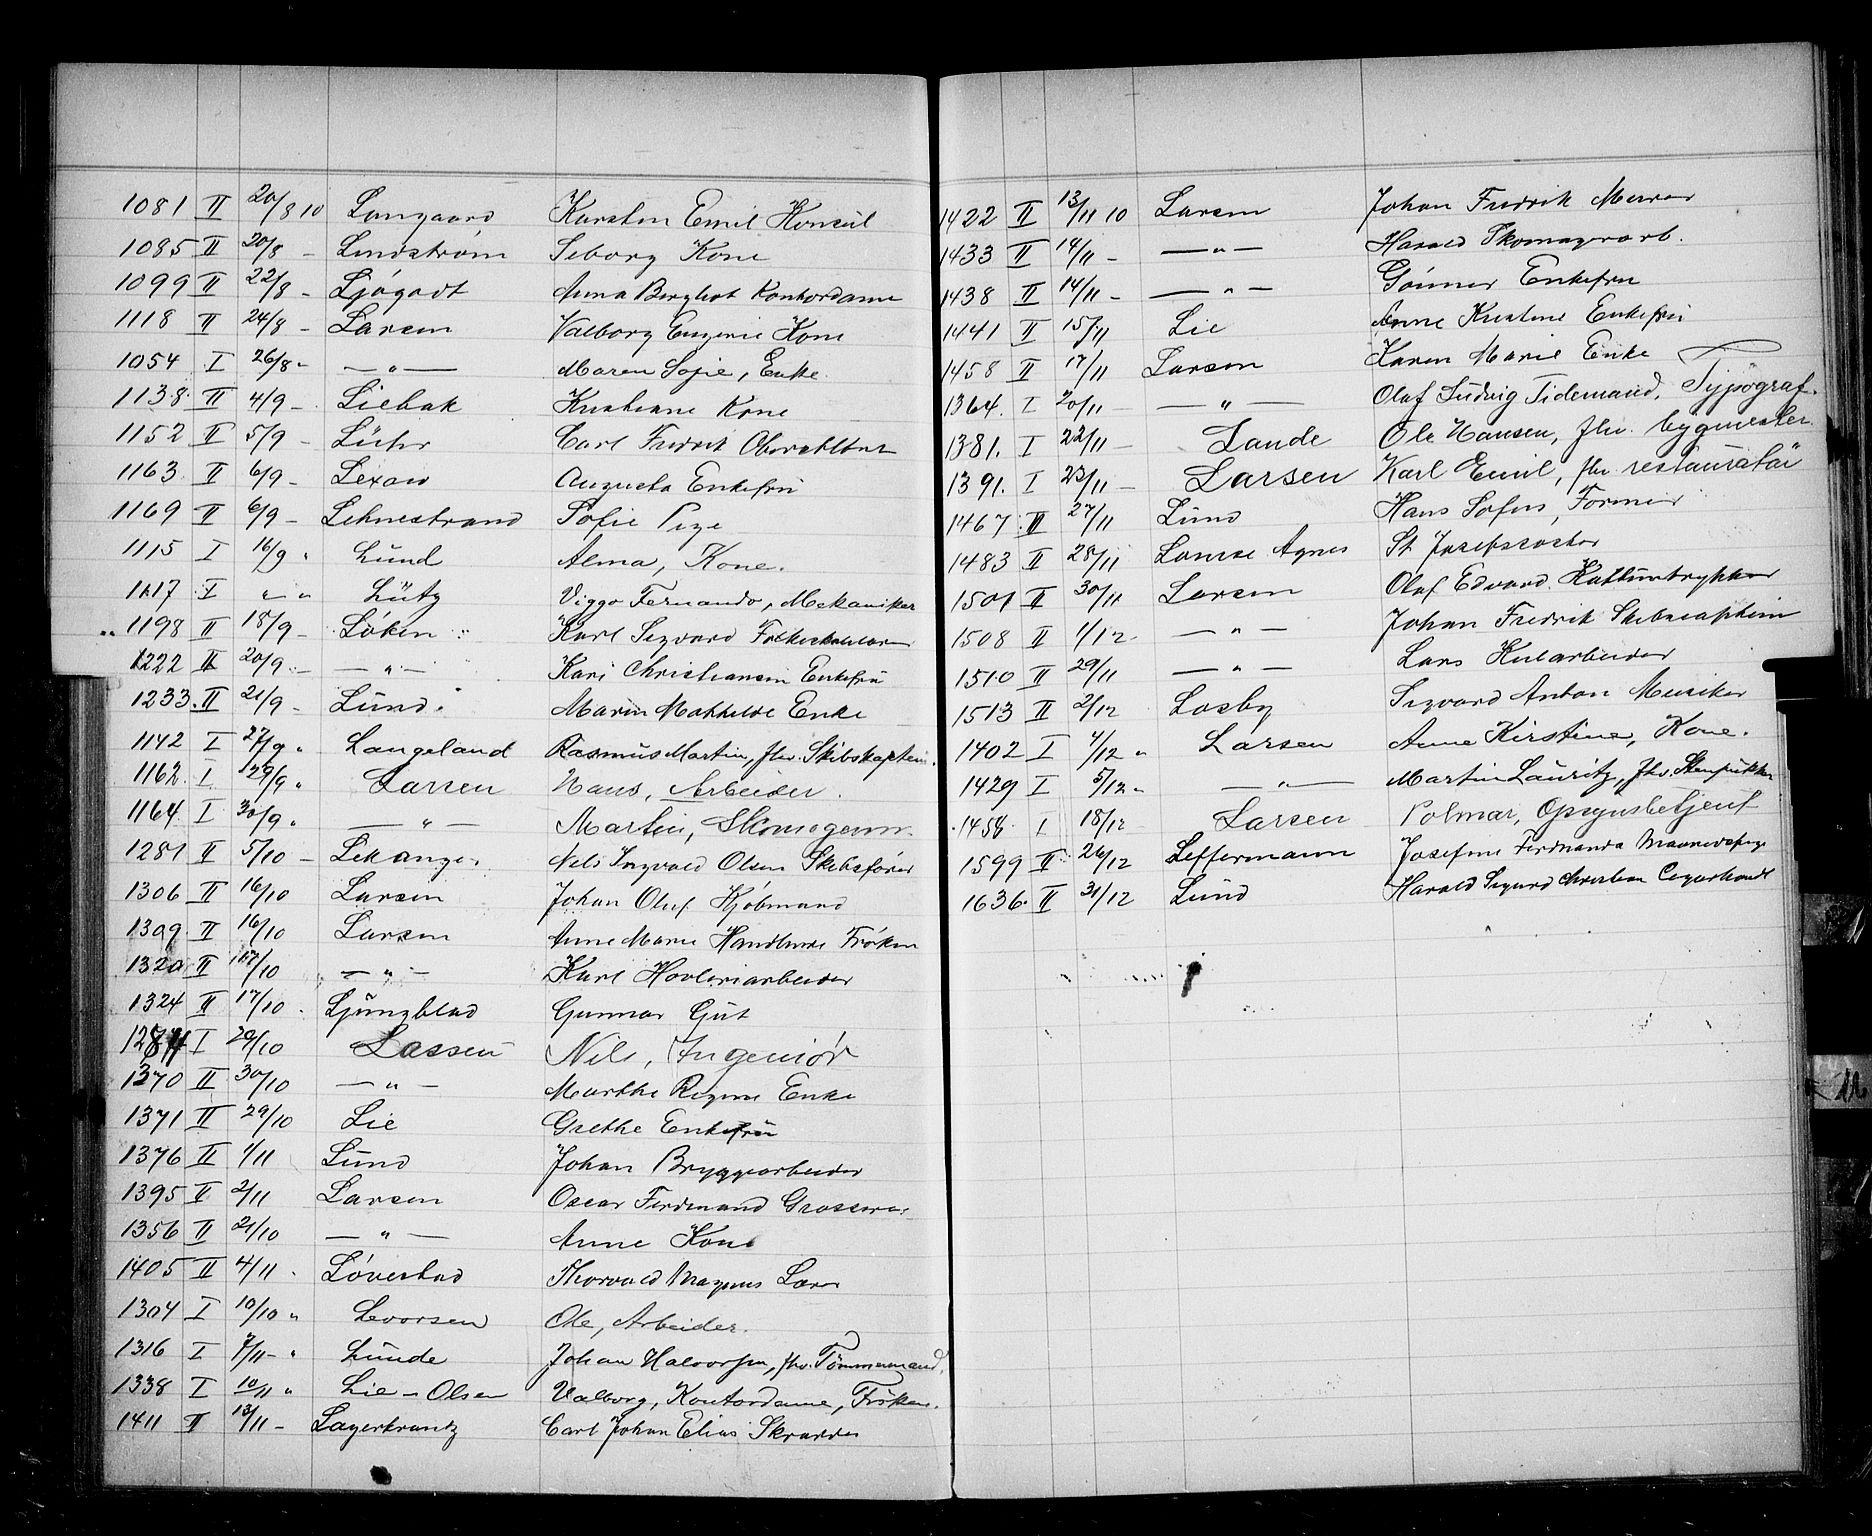 1081 II 20/8 10 Langaard Karsten Emil Konsul
1085 II 20/8 - Lindstrøm Seborg Kone
1099 II 22/8 - Ljøgodt Anna Bergliot Kontordame
1118 II 24/8 - Larsen Valborg Eugenie Kone
1054 I 26/8 - — " — Maren Sofie, Enke
1138 II 4/9 - Liebak Kristiane Kone
1152 II 5/9 - Lühr Carl Fredrik
1163 II 6/9 - Lexow Augusta Enkefru
1169 II 6/9 - Lehnestrand Sofie Pige
1115 I 16/9 " Lund Alma, Kone.
1117 I " " Lütz Viggo Fernando, Mekaniker
1198 II 18/9 - Løken Karl Sigvard
1222 II 20/9 - — " — Kari Christiansen Enkefru
1233 II 21/9 - Lund Maren Mathilde Enke
1142 I 27/9 " Langeland Rasmus Martin, fhv. Skibskaptein.
1162 I 29/9 " Larsen Hans, Arbeider.
1164 I 30/9 " — " — Martin, Skomagerm.
1281 II 5/10 - Lekange Nils Ingvald Olsen Skibsfører
1306 II 16/10 Larsen Johan Oluf Kjøbmand
1309 II 16/10 Larsen Anne Marie Handlende Frøken
1320 II 17/10 — " — Karl Høvleriarbeider
1324 II 17/10 - Ljungblad Gunnar Gut
1284 I 20/10 Lassen Nils, Ingeniør
1370 II 30/10 — " — Marthe Regine Enke
1371 II 29/10 Lie Grethe Enkefru
1376 II 1/11 Lund Johan Bryggearbeider
1395 II 2/11 Larsen Oscar Ferdinand Grosserer
1356 II 21/10 — " — Anne Kone
1405 II 4/11 - Løvestad Thorvald Magnus
1304 I 10/10 " Levorsen Ole, Arbeider.
1316 I 7/11 - " Lunde Johan Halvorsen, fhv. Tømmermand.
1338 I 10/11 " Lie-Olsen Valborg, Kontordame, Frøken.
1411 II 13/11 - Lagerkrantz Carl Johan Elias Skrædder
1422 II 13/11 10 Larsen Johan Fredrik Murer
1433 II 14/11 - — " — Harald Skomagerarb.
1438 II 14/11 - — " — Gunner Enkefru
1441 II 15/11 Lie Anne Kristine Enkefru
1458 II 17/11 Larsen Karen Marie Enke
1364. I 20/11 — " — Olaf Ludvig Tidemand, Typograf.
1381. I 22/11 - Lande Ole Hansen, fhv. bygmester.
1391. I 23/11 - Larsen Karl Emil, fhv. restauratør
1467 II 27/11 Lund Hans Sofus, Former
1483 II 28/11 Louise Agnes St Josefssøster
1501 II 30/11 Larsen Olaf Edvard Kattuntrykker
1508 II 1/12 - — " — Johan Fredrik Skibscaptein
1510 II 29/11 — " — Lars Kularbeider
1513 II 2/12 Losby Sigvard Anton Musiker
1402 I 4/12 " Larsen Anne Kirstine, Kone.
1429 I 5/12 " — " — Martin Lauritz, fhv. Stenpukker
1458 I 18/12 Larsen Polmar, Opsynsbetjent
1599 II 26/12 Leffermann Josefine Ferdinanda
1636 II 31/12 Lund Harald Sigurd Christian Cigarhandl